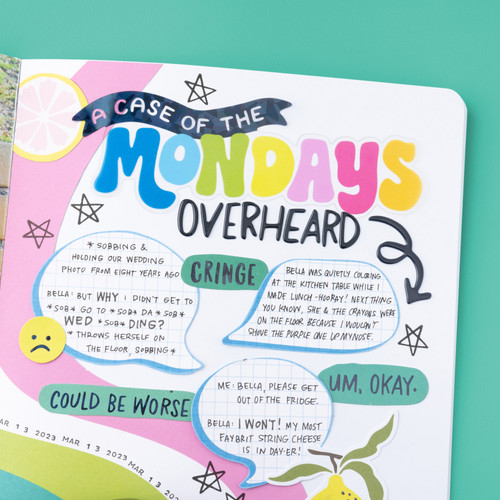 A CASE OF THE
MONDAYS
OVERHEARD
* SOBBING &
HOLDING OUR WEDDING
PHOTO FROM EIGHT YEARS AGO
BELLA: BUT WHY I DIDN'T GET TO
*SOB* GO TO *SOB* DA *SOB*
WED *SOB* DING?
* THROWS HERSELF ON
THE FLOOR, SOBBING *
CRINGE
BELLA WAS QUIETLY COLORING
AT THE KITCHEN TABLE WHILE I
MADE LUNCH - HOORAY! NEXT THING
YOU KNOW, SHE & THE CRAYONS WERE
ON THE FLOOR BECAUSE I WOULDN'T
SHOVE THE PURPLE ONE UP MY NOSE.
COULD BE WORSE
ME: BELLA, PLEASE GET
OUT OF THE FRIDGE.
BELLA: I WONT! MY MOST
FAYBRIT STRING CHEESE
IS IN DAY-ER!
UM, OKAY.
MAR 13 2023 MAR 13 2023 MAR 13 2023